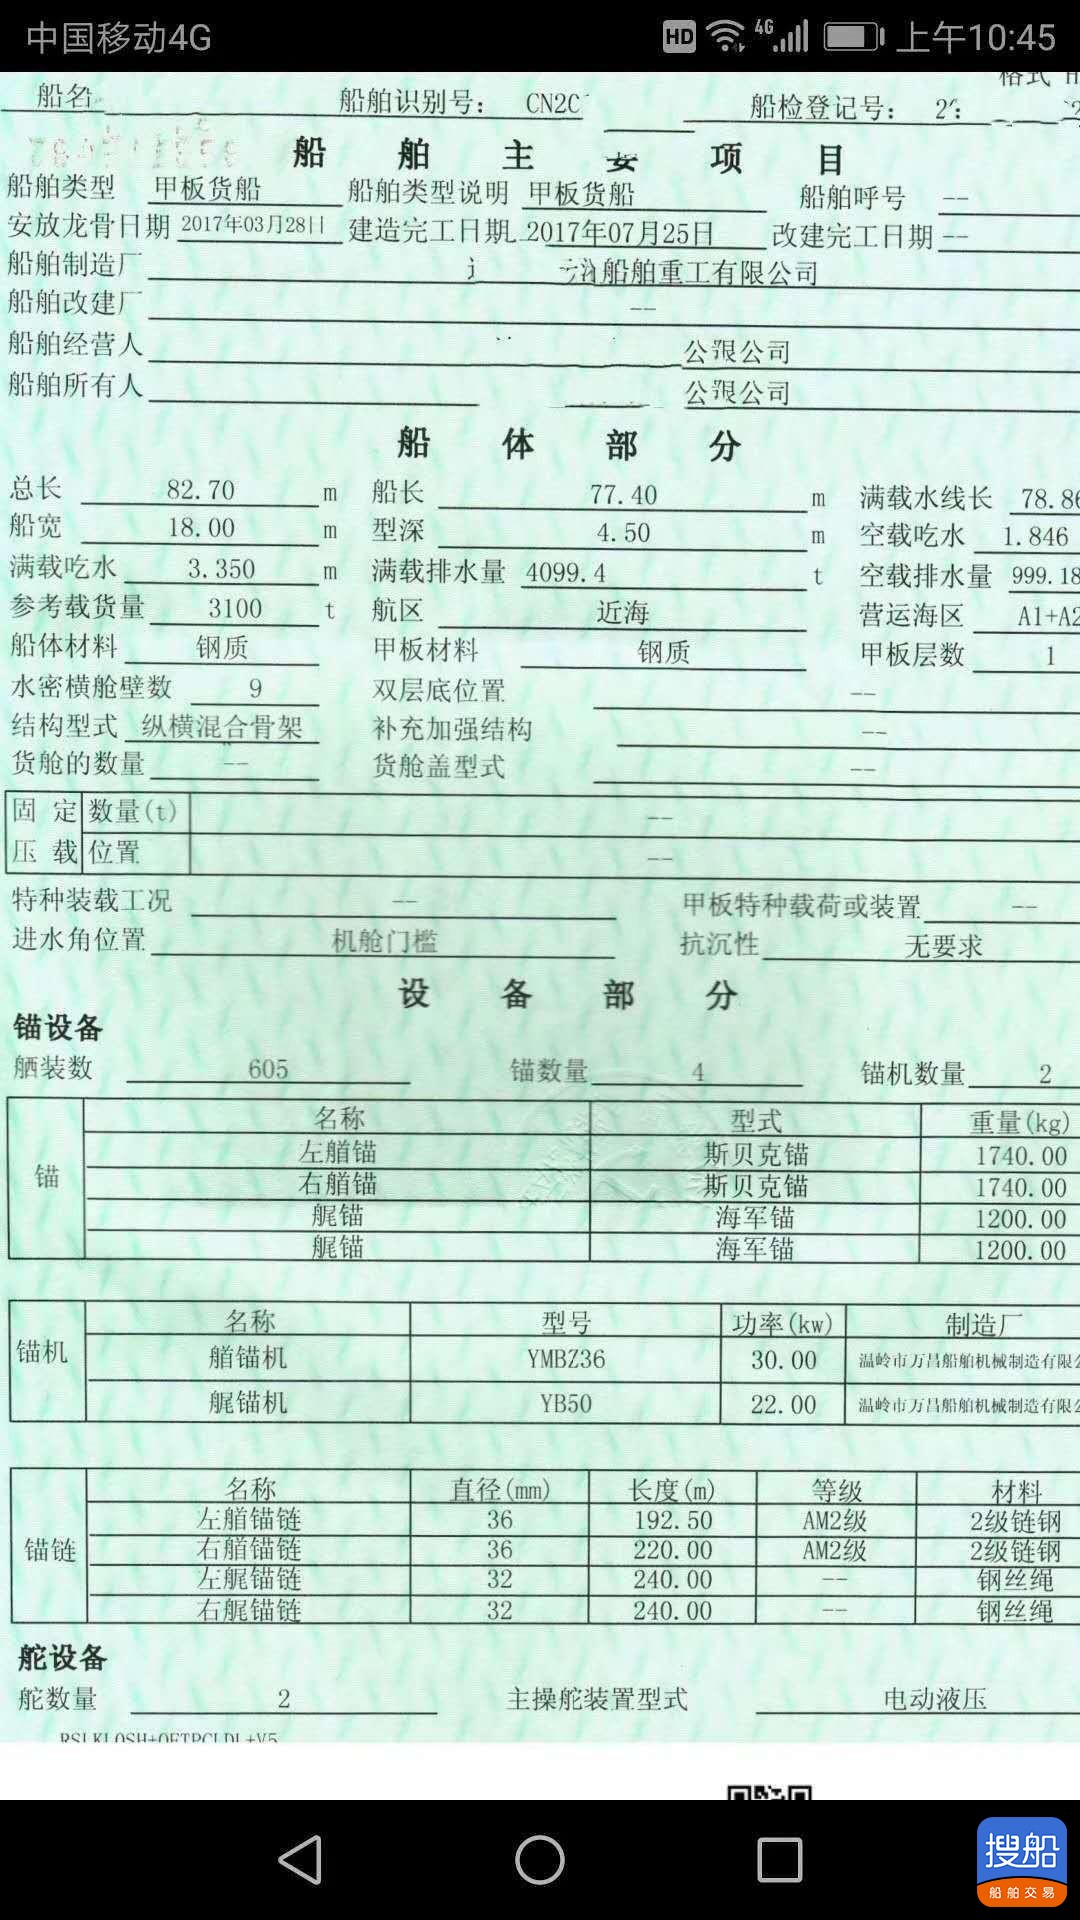 中国移动4G HD 4G 上午10:45
格式
船名 船舶识别号: CN2C 船检登记号: 2
船 舶 主 要 项 目
船舶类型 甲板货船 船舶类型说明 甲板货船 船舶呼号 --
安放龙骨日期 2017年03月28日 建造完工日期 2017年07月25日 改建完工日期 --
船舶制造厂 船舶重工有限公司
船舶改建厂 --
船舶经营人 公限公司
船舶所有人 公限公司
船 体 部 分
总长 82.70 m 船长 77.40 m 满载水线长 78.86
船宽 18.00 m 型深 4.50 m 空载吃水 1.846
满载吃水 3.350 m 满载排水量 4099.4 t 空载排水量 999.18
参考载货量 3100 t 航区 近海 营运海区 A1+A2
船体材料 钢质 甲板材料 钢质 甲板层数 1
水密横舱壁数 9 双层底位置 --
结构型式 纵横混合骨架 补充加强结构 --
货舱的数量 -- 货舱盖型式 --
固 定 数量(t) --
压 载 位置 --
特种装载工况 -- 甲板特种载荷或装置 --
进水角位置 机舱门槛 抗沉性 无要求
设 备 部 分
锚设备
舾装数 605 锚数量 4 锚机数量 2
名称 型式 重量(kg)
左艏锚 斯贝克锚 1740.00
锚
右艏锚 斯贝克锚 1740.00
艉锚 海军锚 1200.00
艉锚 海军锚 1200.00
名称 型号 功率(kw) 制造厂
锚机
艏锚机 YMBZ36 30.00 温岭市万昌船舶机械制造有限公
艉锚机 YB50 22.00 温岭市万昌船舶机械制造有限公
名称 直径(mm) 长度(m) 等级 材料
左艏锚链 36 192.50 AM2级 2级链钢
锚链
右艏锚链 36 220.00 AM2级 2级链钢
左艉锚链 32 240.00 -- 钢丝绳
右艉锚链 32 240.00 -- 钢丝绳
舵设备
舵数量 2 主操舵装置型式 电动液压
搜船
船舶交易